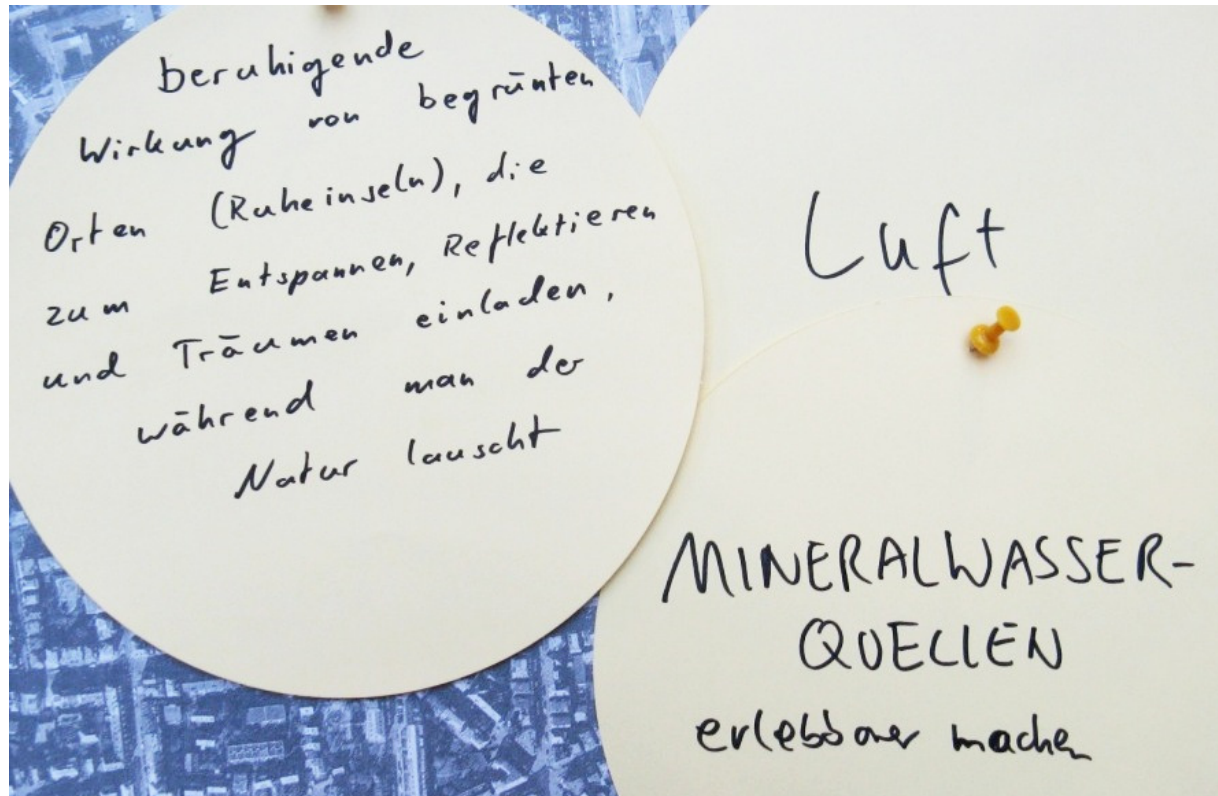 beruhigende
Wirkung von begrünten
Orten (Ruheinseln), die
zum Entspannen, Reflektieren
und Träumen einladen,
während man der
Natur lauscht
Luft
MINERALWASSER-
QUELLEN
erlebbar machen